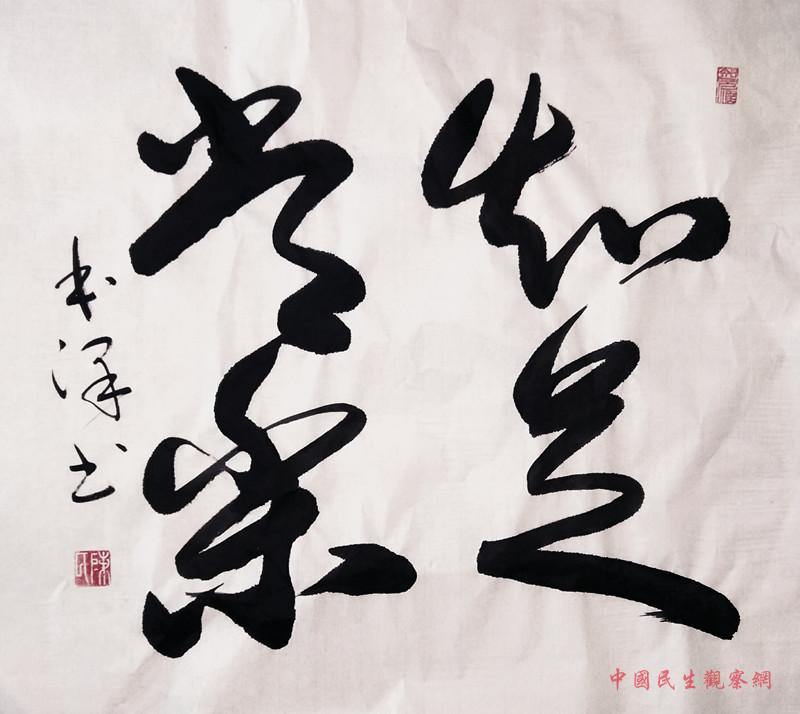 知足
常樂
澤书
陳氏
中國民生觀察網